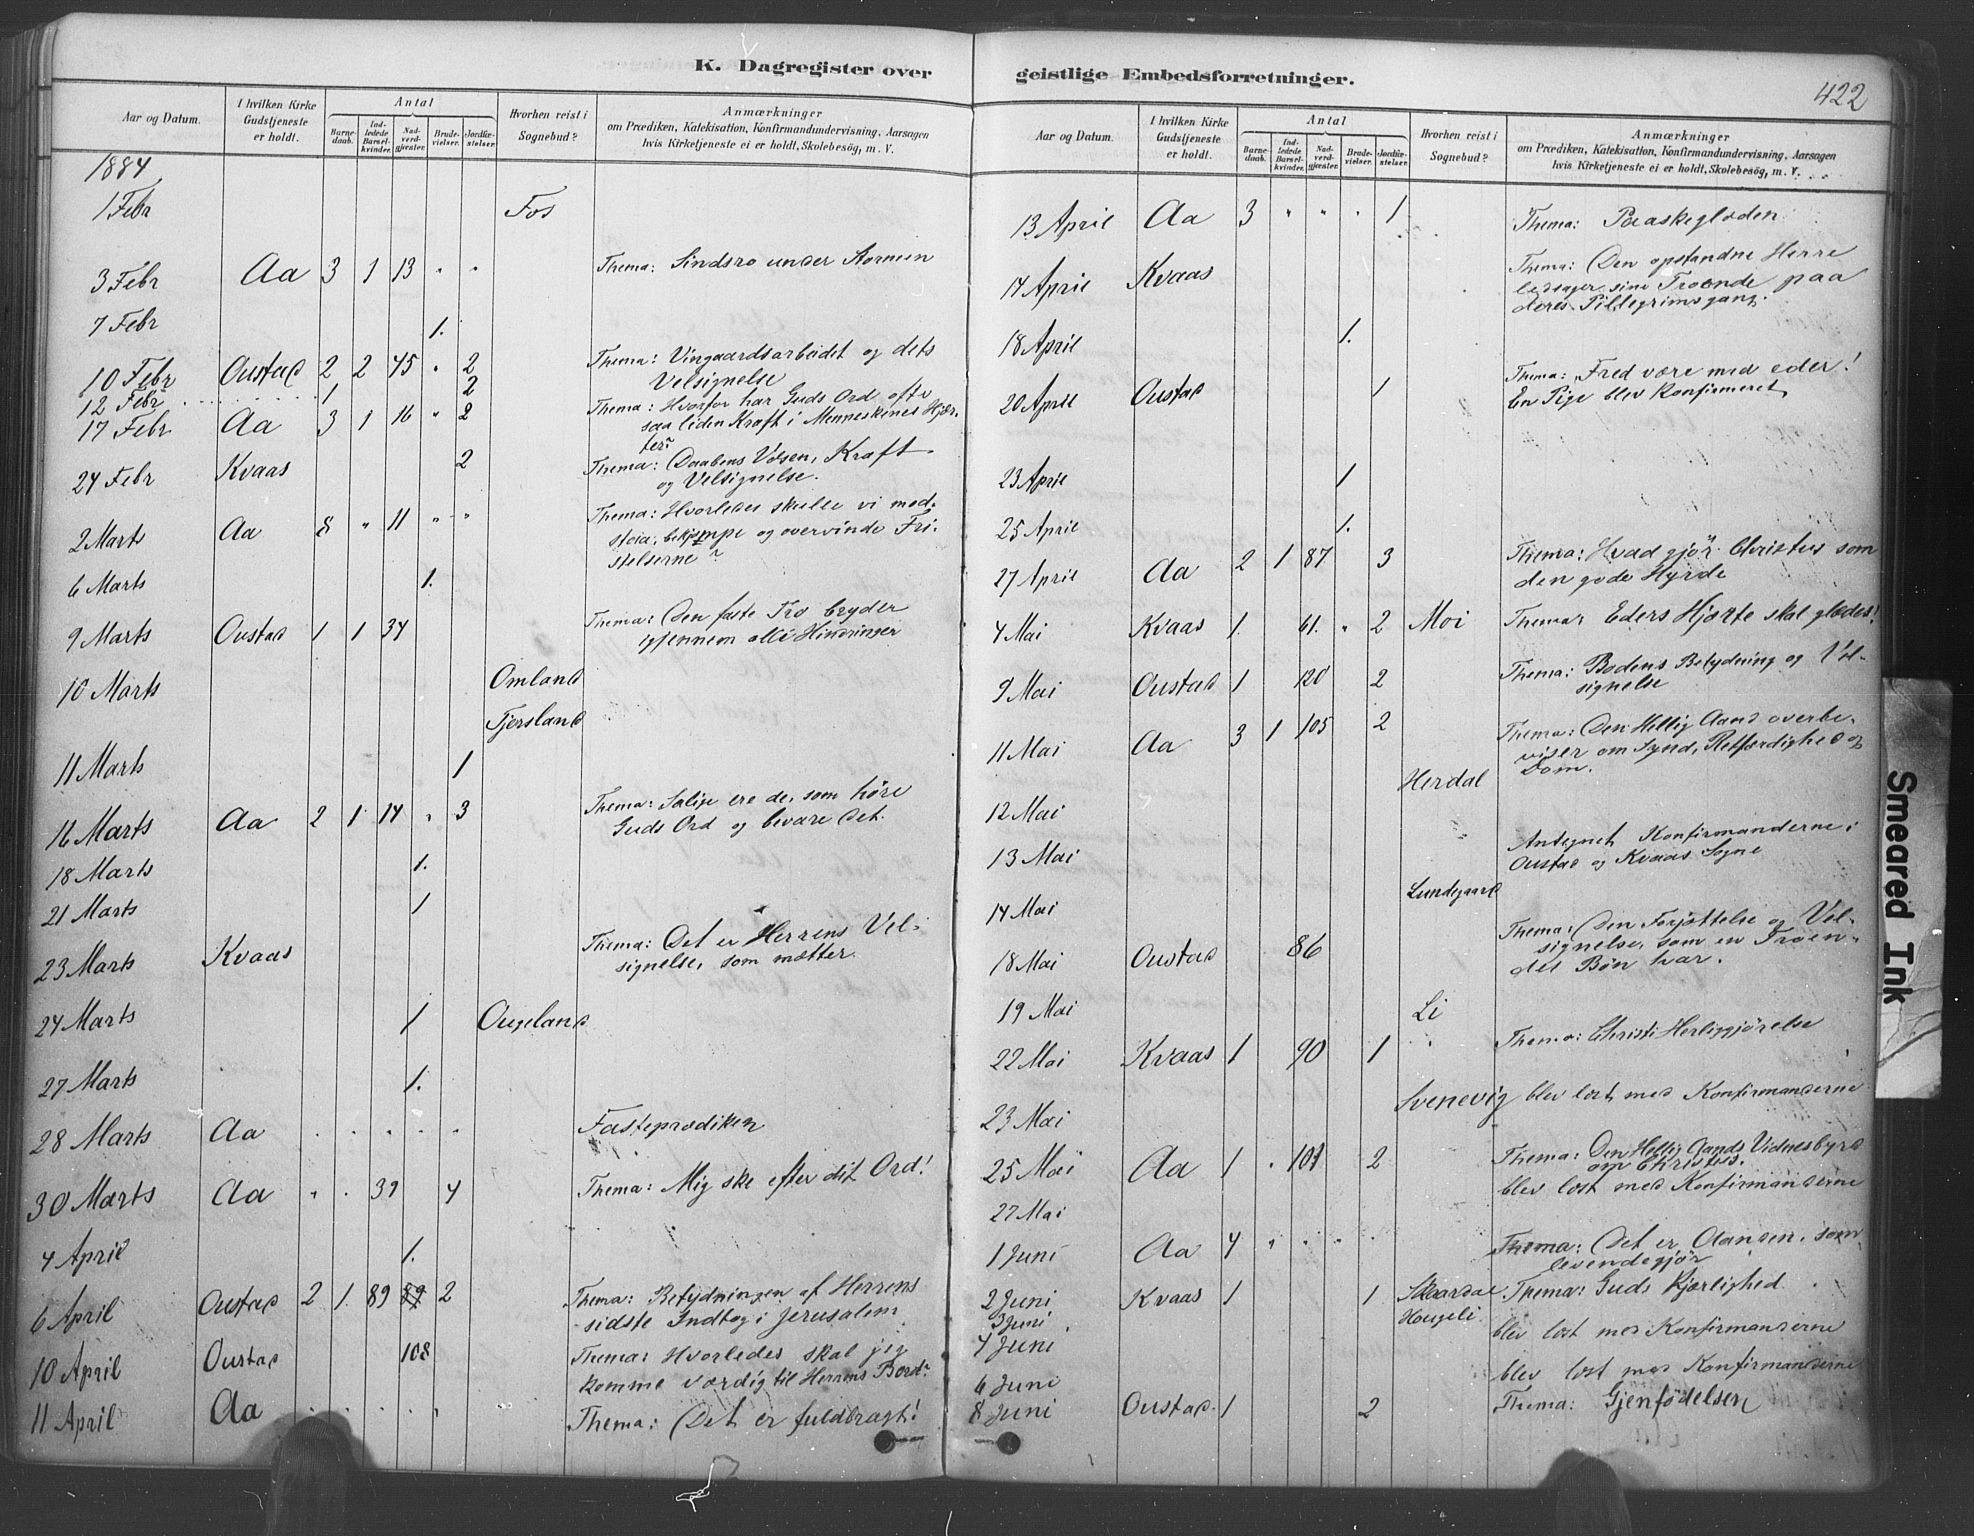 K. Dagregister over geistlige Embedsforretninger.
422
Aar og Datum.
I hvilken Kirke Gudstjeneste er holdt.
Antal
Barne-daab.
Ind-ledede Barsel-kvinder.
Nad-verd-gjester.
Brude-vielser.
Jordfæ-stelser.
Hvorhen reist i Sognebud?
Anmærkninger
om Prædiken, Katekisation, Konfirmandundervisning, Aarsagen
hvis Kirketjeneste ei er holdt, Skolebesög, m. V.
1884
1 Febr Fos
3 Febr Aa 3 1 13 " " Thema: Sindsro under Stormen
7 Febr 1.
10 Febr Oustad 2 2 45 " 2 Thema: Vingaardsarbeidet og dets
Velsignelse
12 Febr 1 2
17 Febr Aa 3 1 16 " 2 Thema: Hvorfor har Guds Ord ofte
saa liden Kraft i Menneskenes Hjær-
ter?
24 Febr Kvaas 2 Thema: Daabens Væsen, Kraft
og Velsignelse.
2 Marts Aa 8 " 11 " " Thema: Hvorledes skulle vi mod-
staa, bekjæmpe og overvinde Fri-
stelserne?
6 Marts 1.
9 Marts Oustad 1 1 34 Thema: Den faste Tro bryder
igjennem alle Hindringer
10 Marts Omland
Tjersland
11 Marts 1
16 Marts Aa 2 1 14 " 3 Thema: Salige ere de, som høre
Guds Ord og bevare det.
18 Marts 1.
21 Marts 1
23 Marts Kvaas Thema: Det er Herrens Vel-
signelse, som mætter.
24 Marts 1 Ougeland
27 Marts 1.
28 Marts Aa . . . . . Fasteprædiken
30 Marts Aa " . 39 4 Thema: Mig ske efter dit Ord!
4 April 1.
6 April Oustad 2 1. 89 89 2 Thema: Betydningen af Herrens
sidste Indtog i Jerusalem
10 April Oustad 108 Thema: Hvorledes skal jeg
komme værdig til Herrens Bord?
11 April Aa . . . . . Thema: Det er fuldbragt!
Aar og Datum.
I hvilken Kirke Gudstjeneste er holdt.
Antal
Barne-daab.
Ind-ledede Barsel-kvinder.
Nad-verd-gjester.
Brude-vielser.
Jordfæ-stelser.
Hvorhen reist i Sognebud?
Anmærkninger
om Prædiken, Katekisation, Konfirmandundervisning, Aarsagen
hvis Kirketjeneste ei er holdt, Skolebesög, m. V.
13 April Aa 3 " " " 1 Thema: Paaskeglæden
14 April Kvaas Thema: Den opstandne Herre
ledsager sine Troende paa
deres Pillegrimsgang.
18 April 1.
20 April Oustad 1 Thema: Fred være med eder!
En Pige blev konfirmeret
23 April 1
25 April 1.
27 April Aa 2 1 87 3 Thema: Hvad gjør Christus som
den gode Hyrde
4 Mai Kvaas 1. 61. " 2 Moi Thema: Eders Hjerte skal glædes!
9 Mai Oustad 1 120 2 Thema: Bodens Betydning og Vel-
signelse
11 Mai Aa 3 1 105 2 Thema: Den Hellig Aand overbe-
viser om Synd, Retfærdighed og
Dom.
12 Mai Herdal
13 Mai Antegnet Konfirmanderne i
Oustad og Kvaas Sogne
14 Mai Lundegaard
18 Mai Oustad 86 Thema: Den Forjættelse og Vel-
signelse, som en Troen-
des Bøn har.
19 Mai Li
22 Mai Kvaas 1 90 1 Thema: Christi Herliggjørelse
23 Mai Svenevig blev læst med Konfirmanderne
25 Mai Aa 1 " 101 2 Thema: Den Hellig Aands Vidnesbyrd
om Christus.
27 Mai blev læst med Konfirmanderne
1 Juni Aa 4 " " " Thema: Det er Aanden, som
levendegjør
2 Juni Kvaas 1 1 Skaardal Thema: Guds Kjærlighed
3 Juni Hougeli
4 Juni blev læst med Konfirmanderne
6 Juni blev læst med Konfirmanderne
8 Juni Oustad 1 2 Thema: Gjenfødelsen
Smeared Ink